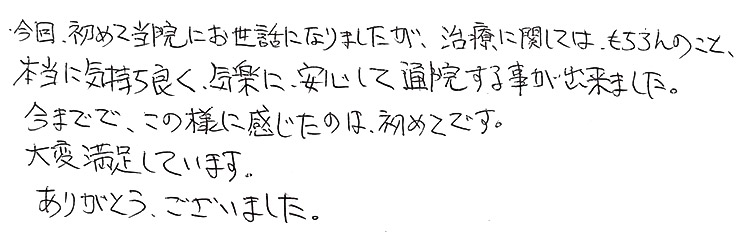 今回、初めて当院にお世話になりましたが、治療に関しては、もちろんのこと、
本当に気持ち良く、気楽に、安心して通院する事が出来ました。
今までで、この様に感じたのは、初めてです。
大変満足しています。
ありがとう、ございました。